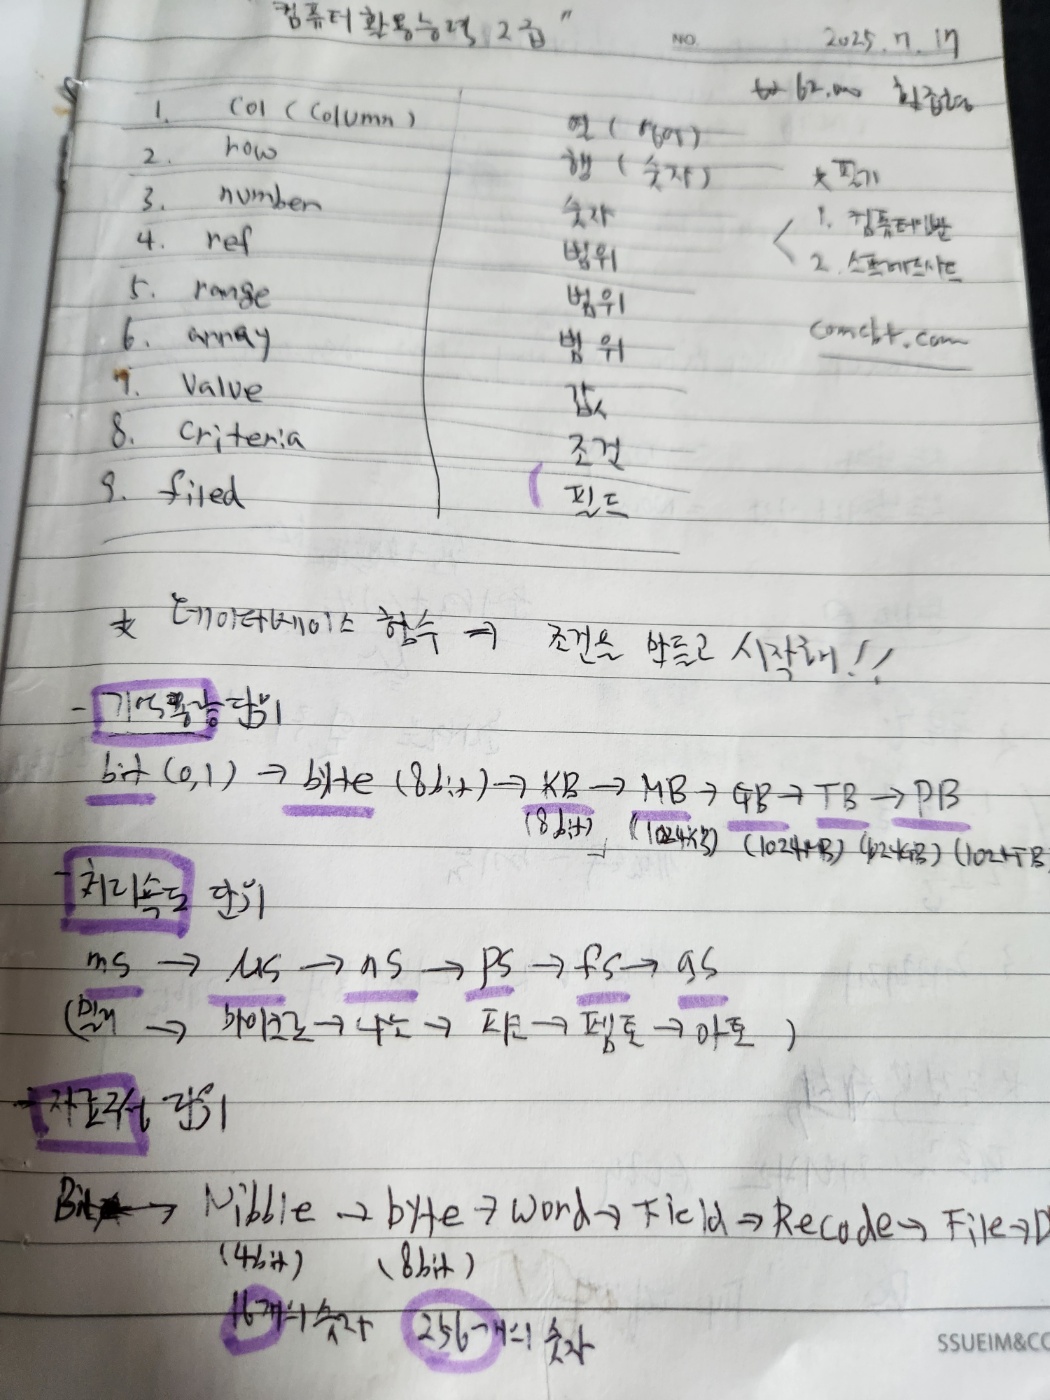 "컴퓨터활용능력 2급"
NO. 2025.7.17
62,000
1. Col (Column) 열 (영어)
2. row 행 (숫자)
3. number 숫자
4. ref 범위
5. range 범위
6. array 범위
7. Value 값
8. Criteria 조건
9. filed 필드
★ 필기
1. 컴퓨터일반
2. 스프레드시트
comcbt.com
★ 데이터베이스 함수 → 조건을 만들고 시작해!!
- 기억용량 단위
bit (0,1) → byte (8bit) → KB → MB → GB → TB → PB
(8bit) (1024KB) (1024MB) (1024GB) (1024TB
- 처리속도 단위
ms → μs → ns → ps → fs → as
(밀리 → 마이크로 → 나노 → 피코 → 펨토 → 아토)
- 자료구성 단위
Bit → Nibble → byte → Word → Field → Recode → File → D
(4bit) (8bit)
16개의 숫자 256개의 숫자
SSUEIM&CO